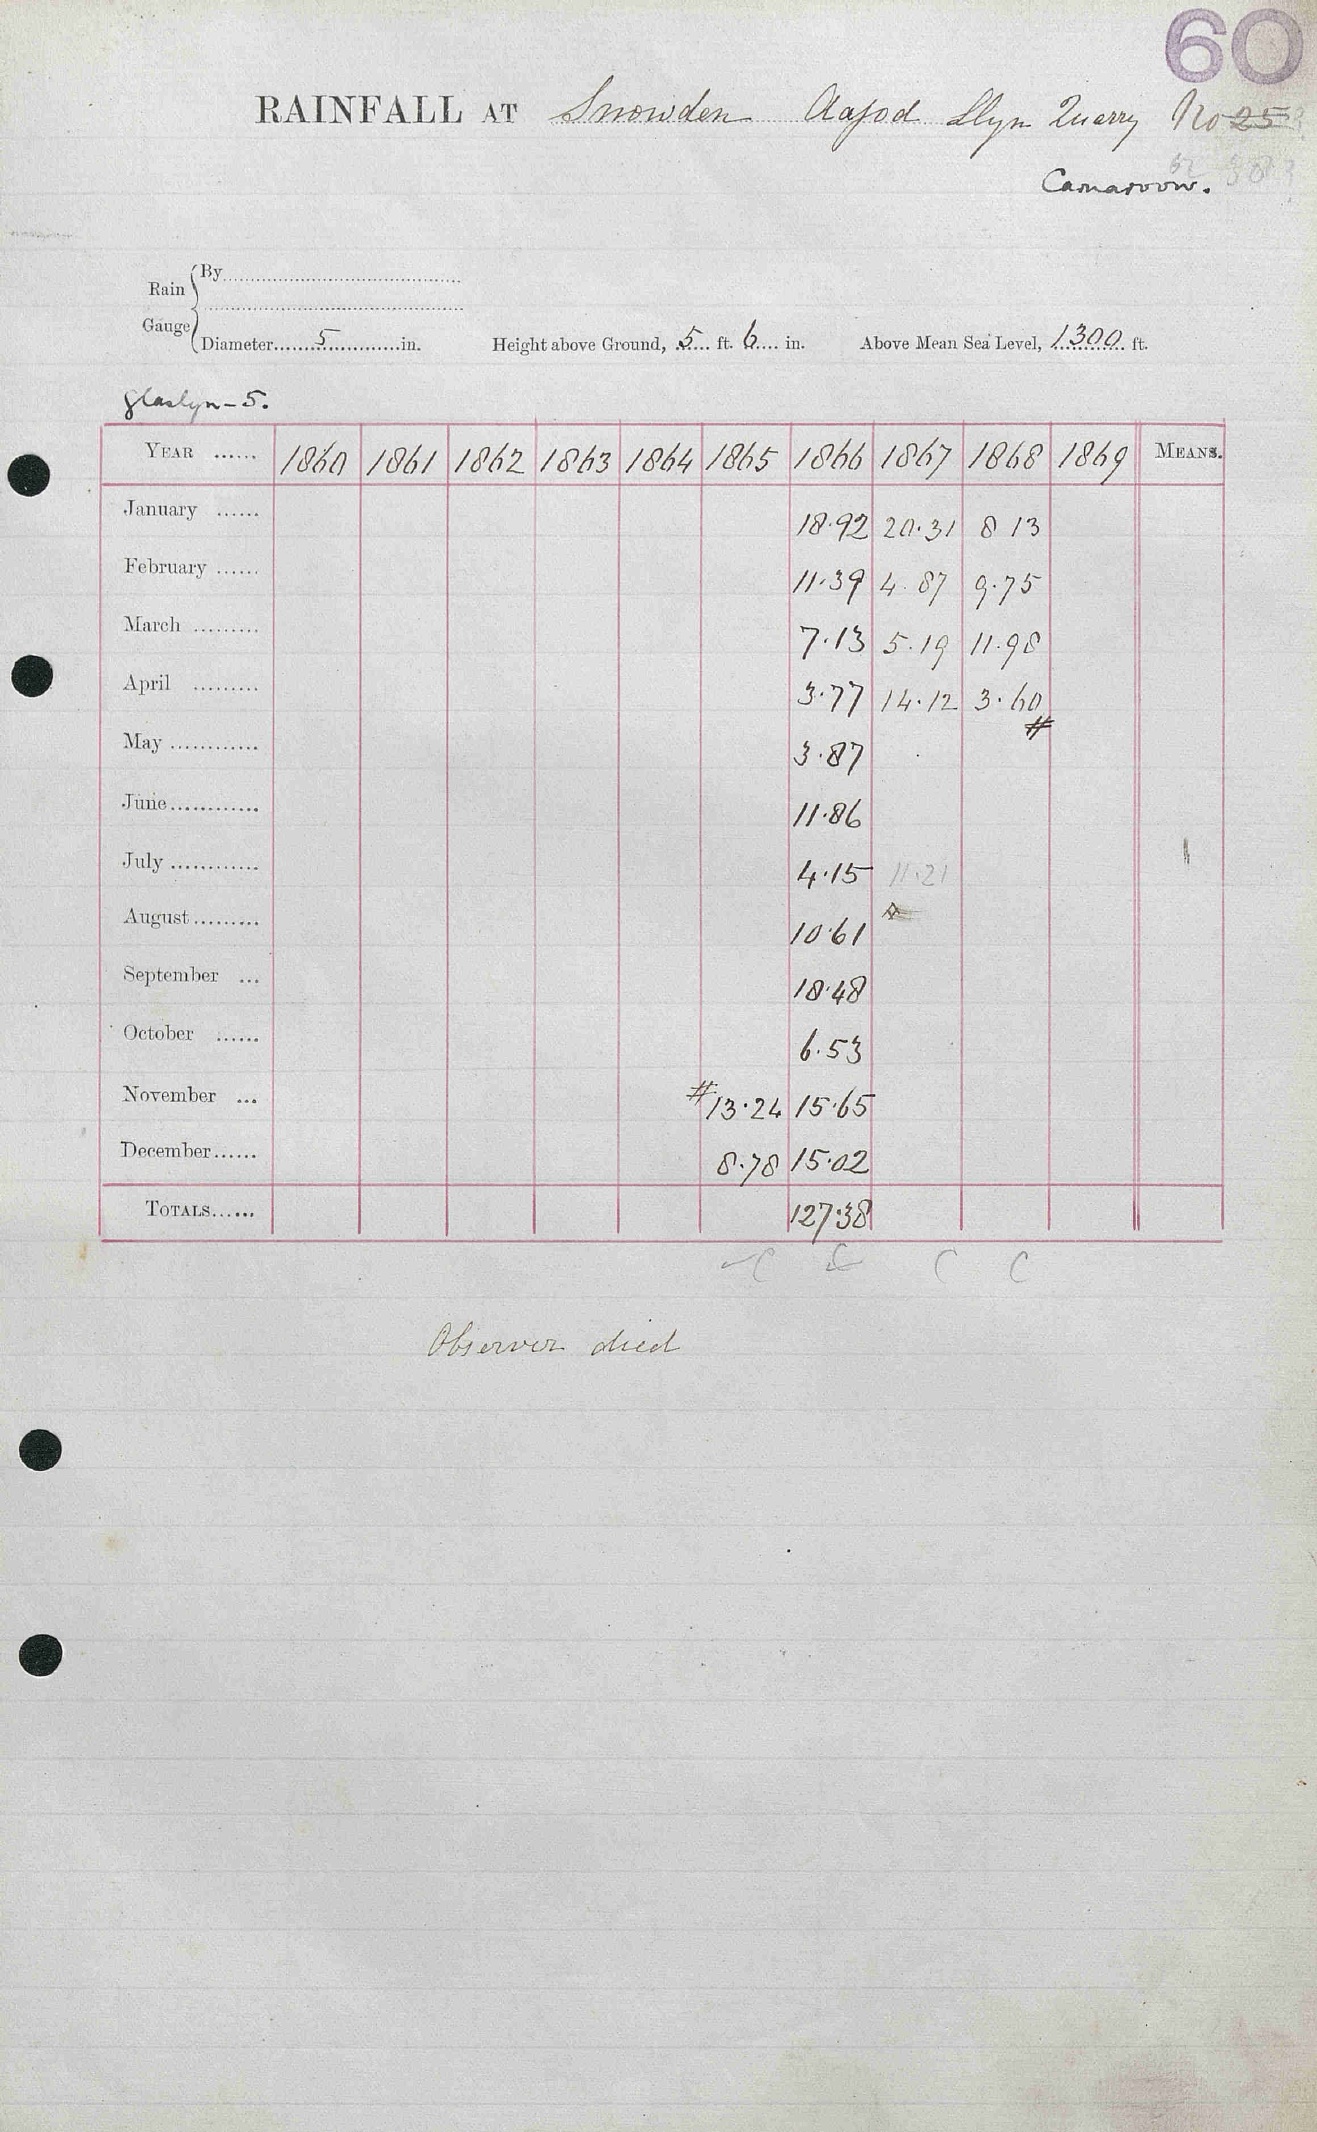 60
RAINFALL AT Snowden Aafod Llyn Quarry No 25
Carnarvon.
Rain Gauge
By
Diameter 5 in. Height above Ground, 5 ft. 6 in. Above Mean Sea Level, 1300 ft.
Glaslyn - 5.
YEAR ...... 1860 1861 1862 1863 1864 1865 1866 1867 1868 1869 MEANS.
January ...... 18.92 20.31 8 13
February ...... 11.39 4.87 9.75
March ......... 7.13 5.19 11.98
April ......... 3.77 14.12 3.60
#
May ............ 3.87
June ............ 11.86
July ............ 4.15 11.21
August ......... 10.61
September ... 18.48
October ...... 6.53
November ... # 13.24 15.65
December ...... 8.78 15.02
TOTALS ...... 127.38
C C C C
Observer died